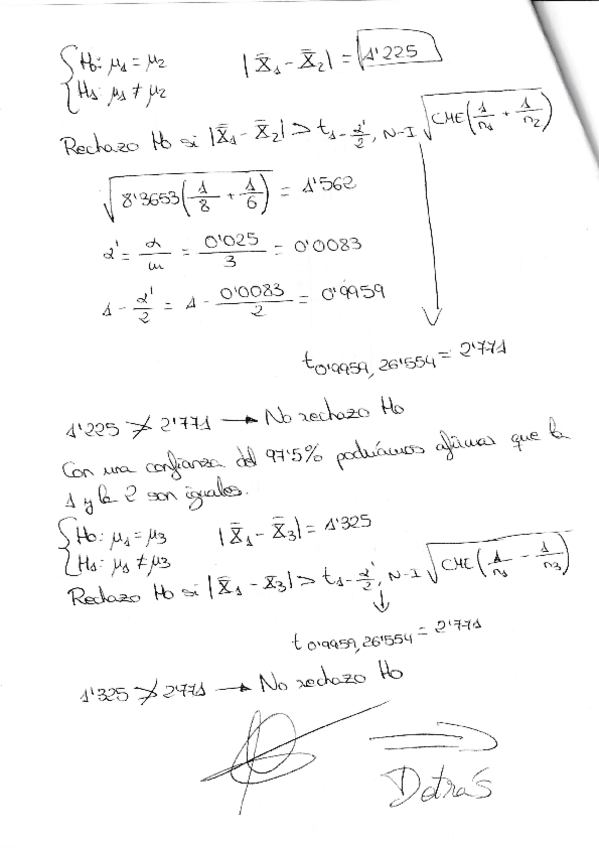 {H₀: μ₁ = μ₂ |X̄₁ - X̄₂| = 1'225
{H₁: μ₁ ≠ μ₂
Rechazo H₀ si |X̄₁ - X̄₂| > t₁₋α'/₂, N-I √CME(1/n₁ + 1/n₂)
√8'3653(1/8 + 1/6) = 1'562
α' = α/m = 0'025/3 = 0'0083
1 - α'/2 = 1 - 0'0083/2 = 0'9959
t0'9959, 26'554 = 2'771
1'225 ≯ 2'771 → No rechazo H₀
Con una confianza del 97'5% podríamos afirmar que la
1 y la 2 son iguales.
{H₀: μ₁ = μ₃ |X̄₁ - X̄₃| = 1'325
{H₁: μ₁ ≠ μ₃
Rechazo H₀ si |X̄₁ - X̄₃| > t₁₋α'/₂, N-I √CME(1/n₁ - 1/n₃)
t0'9959, 26'554 = 2'771
1'325 ≯ 2'771 → No rechazo H₀
Detrás